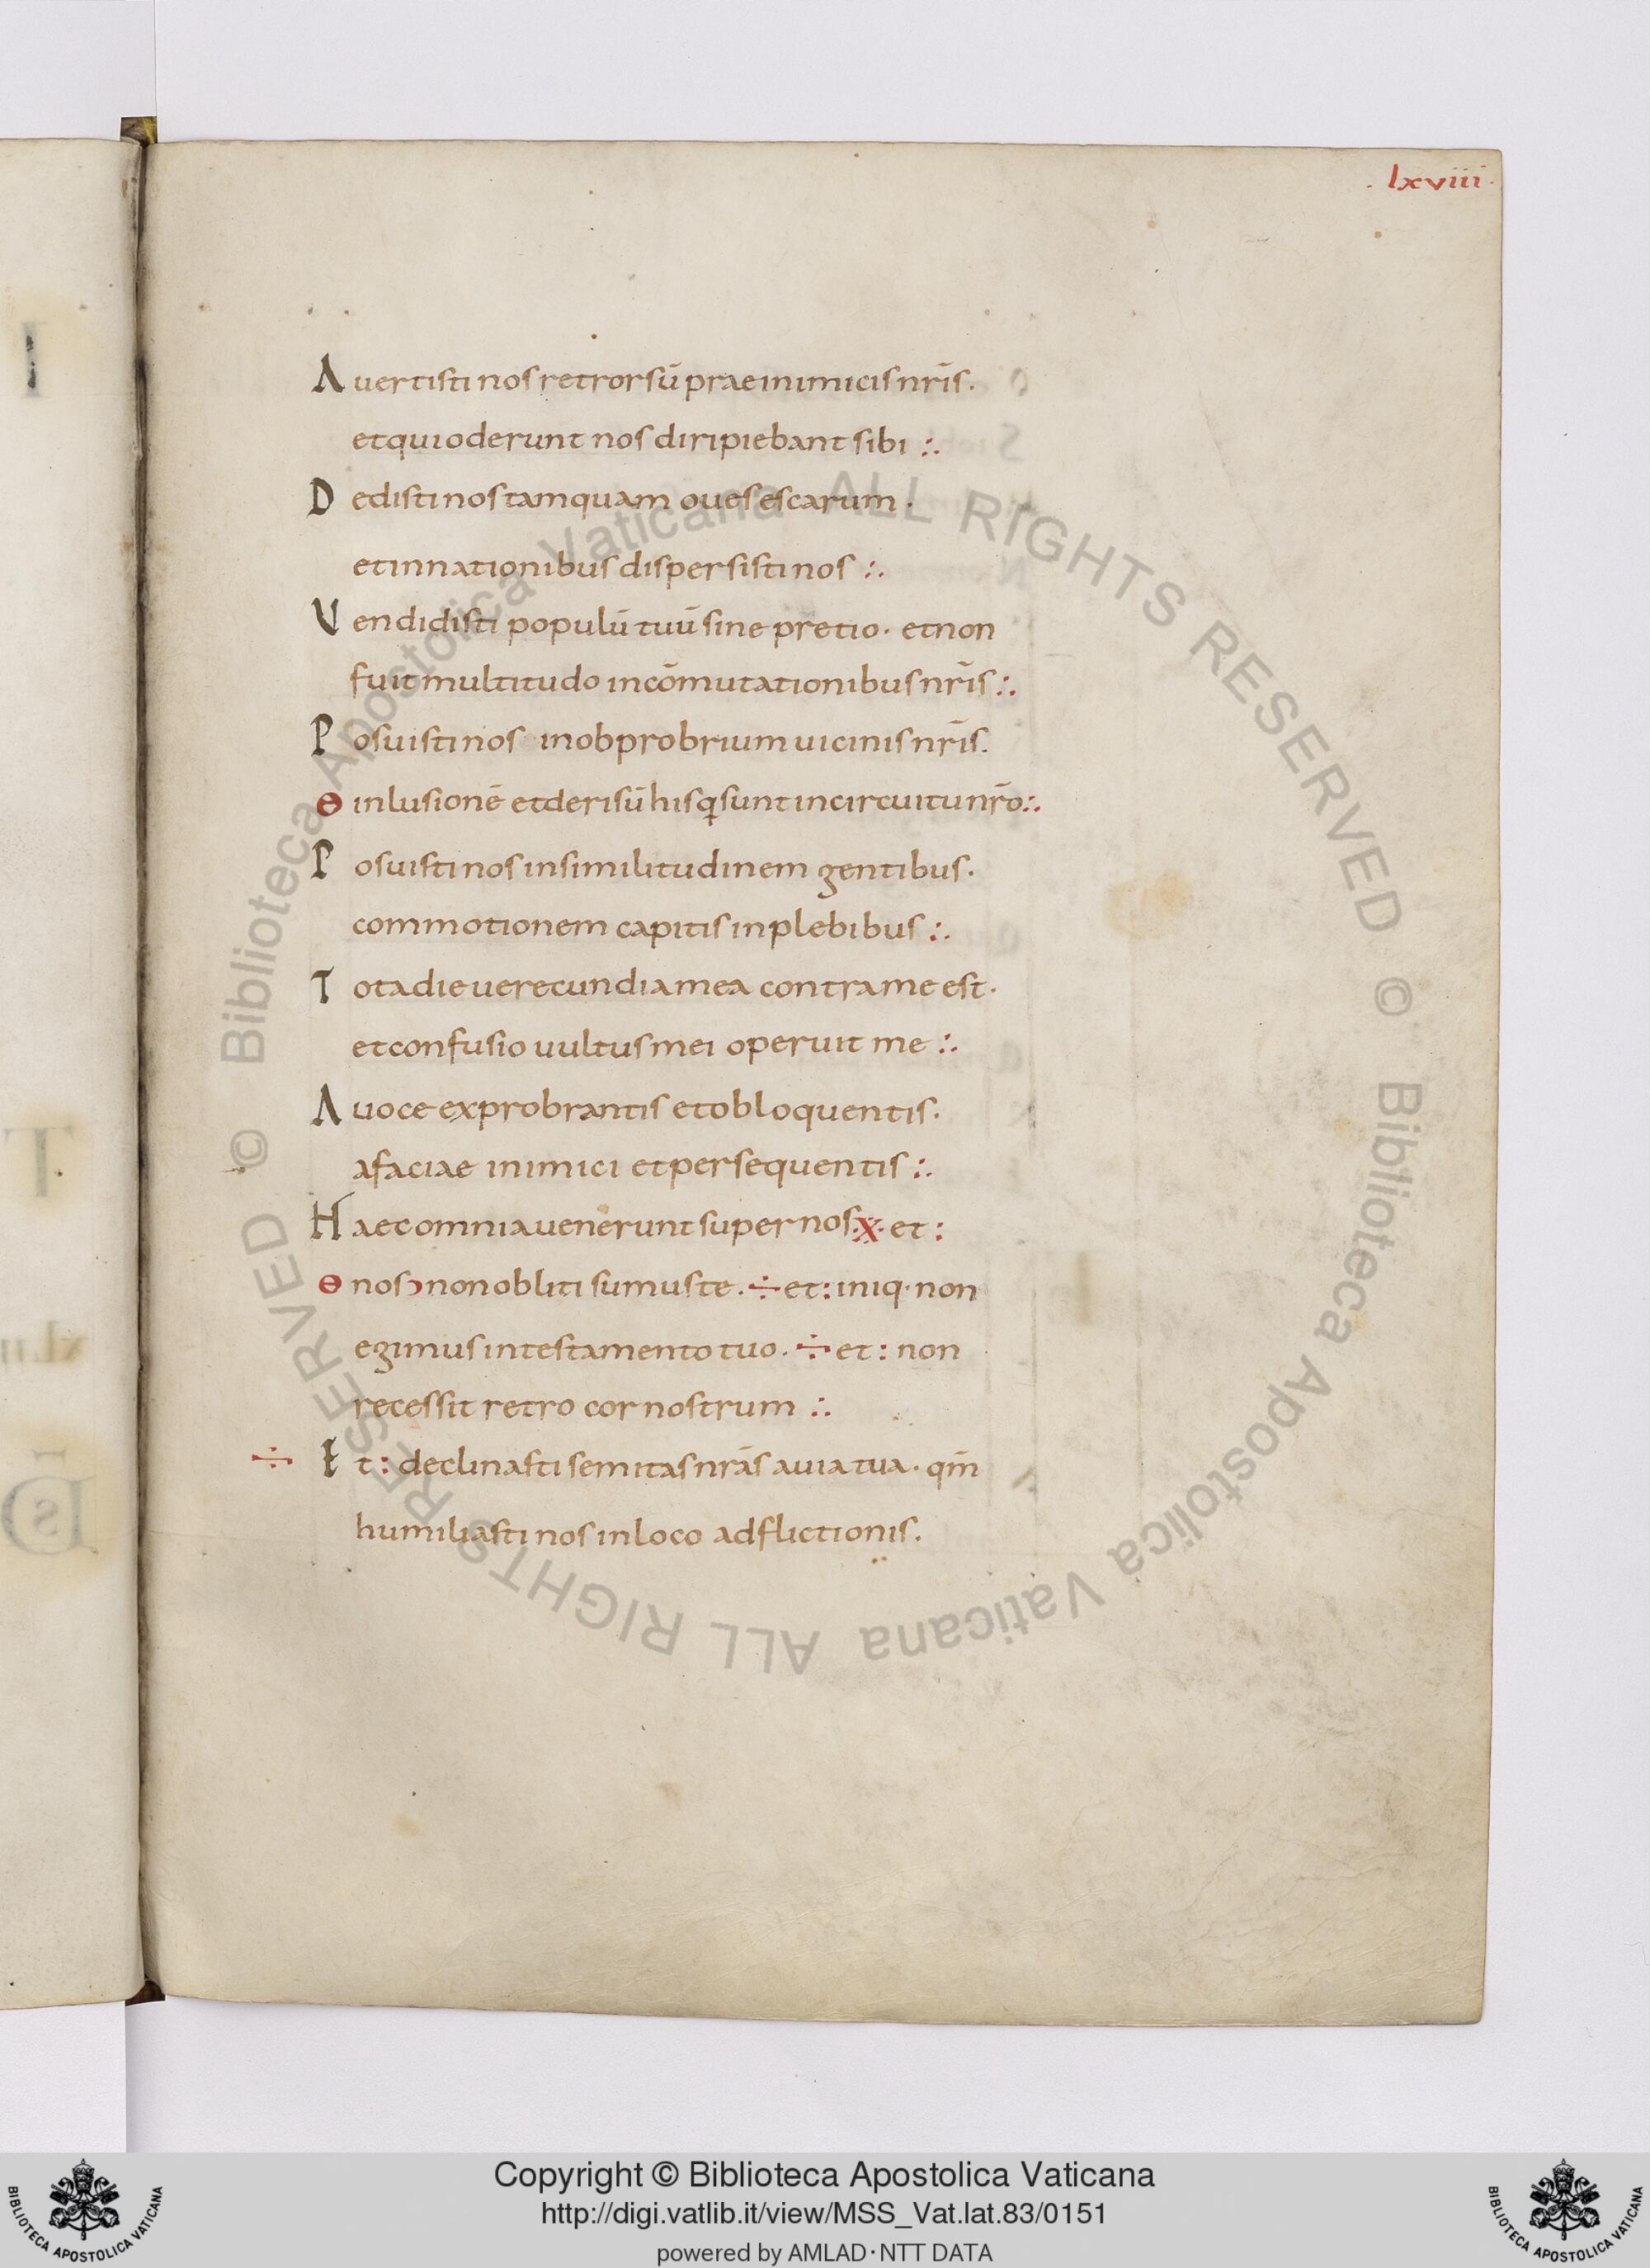 · lxviii ·
Auertisti nos retrorsū prae inimicis nr̄is·
et qui oderunt nos diripiebant sibi :·
Dedisti nos tamquam oues escarum ·
et in nationibus dispersisti nos :·
Vendidisti populū tuū sine pretio · et non
fuit multitudo in cōmutationibus nr̄is :·
Posuisti nos in obprobrium uicinis nr̄is.
ɵ inlusionē et derisū his q̄ sunt in circuitu nr̄o :·
Posuisti nos in similitudinem gentibus·
commotionem capitis in plebibus :·
Tota die uerecundia mea contra me est·
et confusio uultus mei operuit me :·
A uoce exprobrantis et obloquentis·
a faciae inimici et persequentis :·
Haec omnia uenerunt super nos ·x· et :
ɵ nosɔ non obliti sumus te · ÷ et : iniq· non
egimus in testamento tuo · ÷ et : non
recessit retro cor nostrum :·
÷ Et : declinasti semitas nr̄as a uia tua · qm̄
humiliasti nos in loco adflictionis.
© Biblioteca Apostolica Vaticana ALL RIGHTS RESERVED © Biblioteca Apostolica Vaticana ALL RIGHTS RESERVED
Copyright © Biblioteca Apostolica Vaticana
http://digi.vatlib.it/view/MSS_Vat.lat.83/0151
powered by AMLAD·NTT DATA
BIBLIOTECA APOSTOLICA VATICANA
BIBLIOTECA APOSTOLICA VATICANA